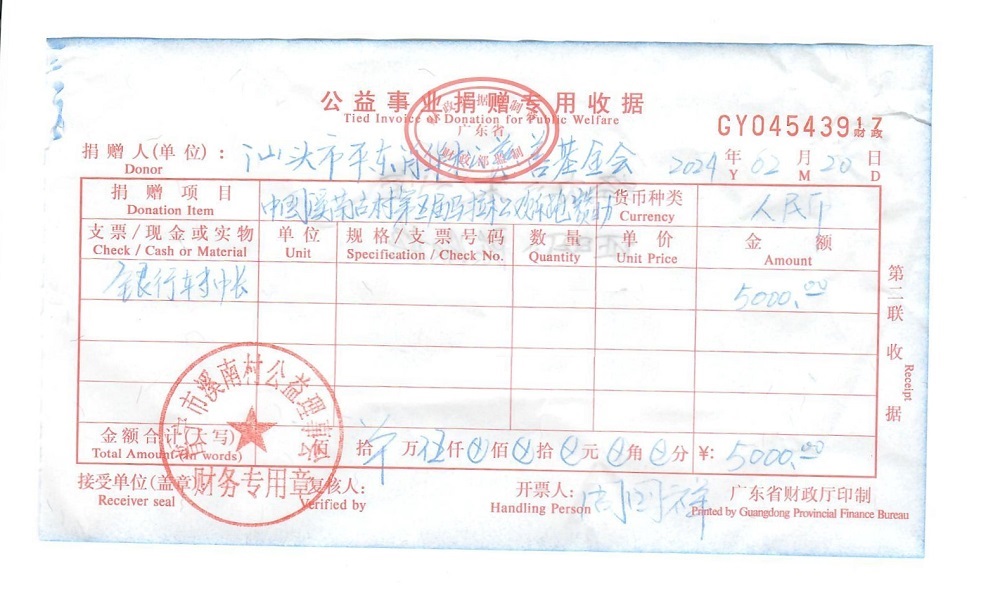 公益事业捐赠专用收据
Tied Invoice of Donation for Public Welfare
广东省
GY04543917 财政
捐赠人(单位): 汕头市 慈善基金会 2024年02月20日
Donor Y M D
捐赠项目 中国溪南古村第五届马拉松欢乐跑赞助 货币种类 人民币
Donation Item Currency
支票/现金或实物 单位 规格/支票号码 数量 单价 金额
Check / Cash or Material Unit Specification / Check No. Quantity Unit Price Amount
银行转帐 5000.00
第二联 收据 Receipt
市溪南村公益理事会
财务专用章
金额合计(大写) 佰 拾 万伍仟 佰 拾 元 角 分 ¥: 5000.00
Total Amount (in words)
接受单位(盖章) 复核人: 开票人: 广东省财政厅印制
Receiver seal Verified by Handling Person Printed by Guangdong Provincial Finance Bureau